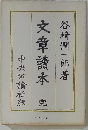 谷崎潤一郎著
文章讀本
完
中央公論社版